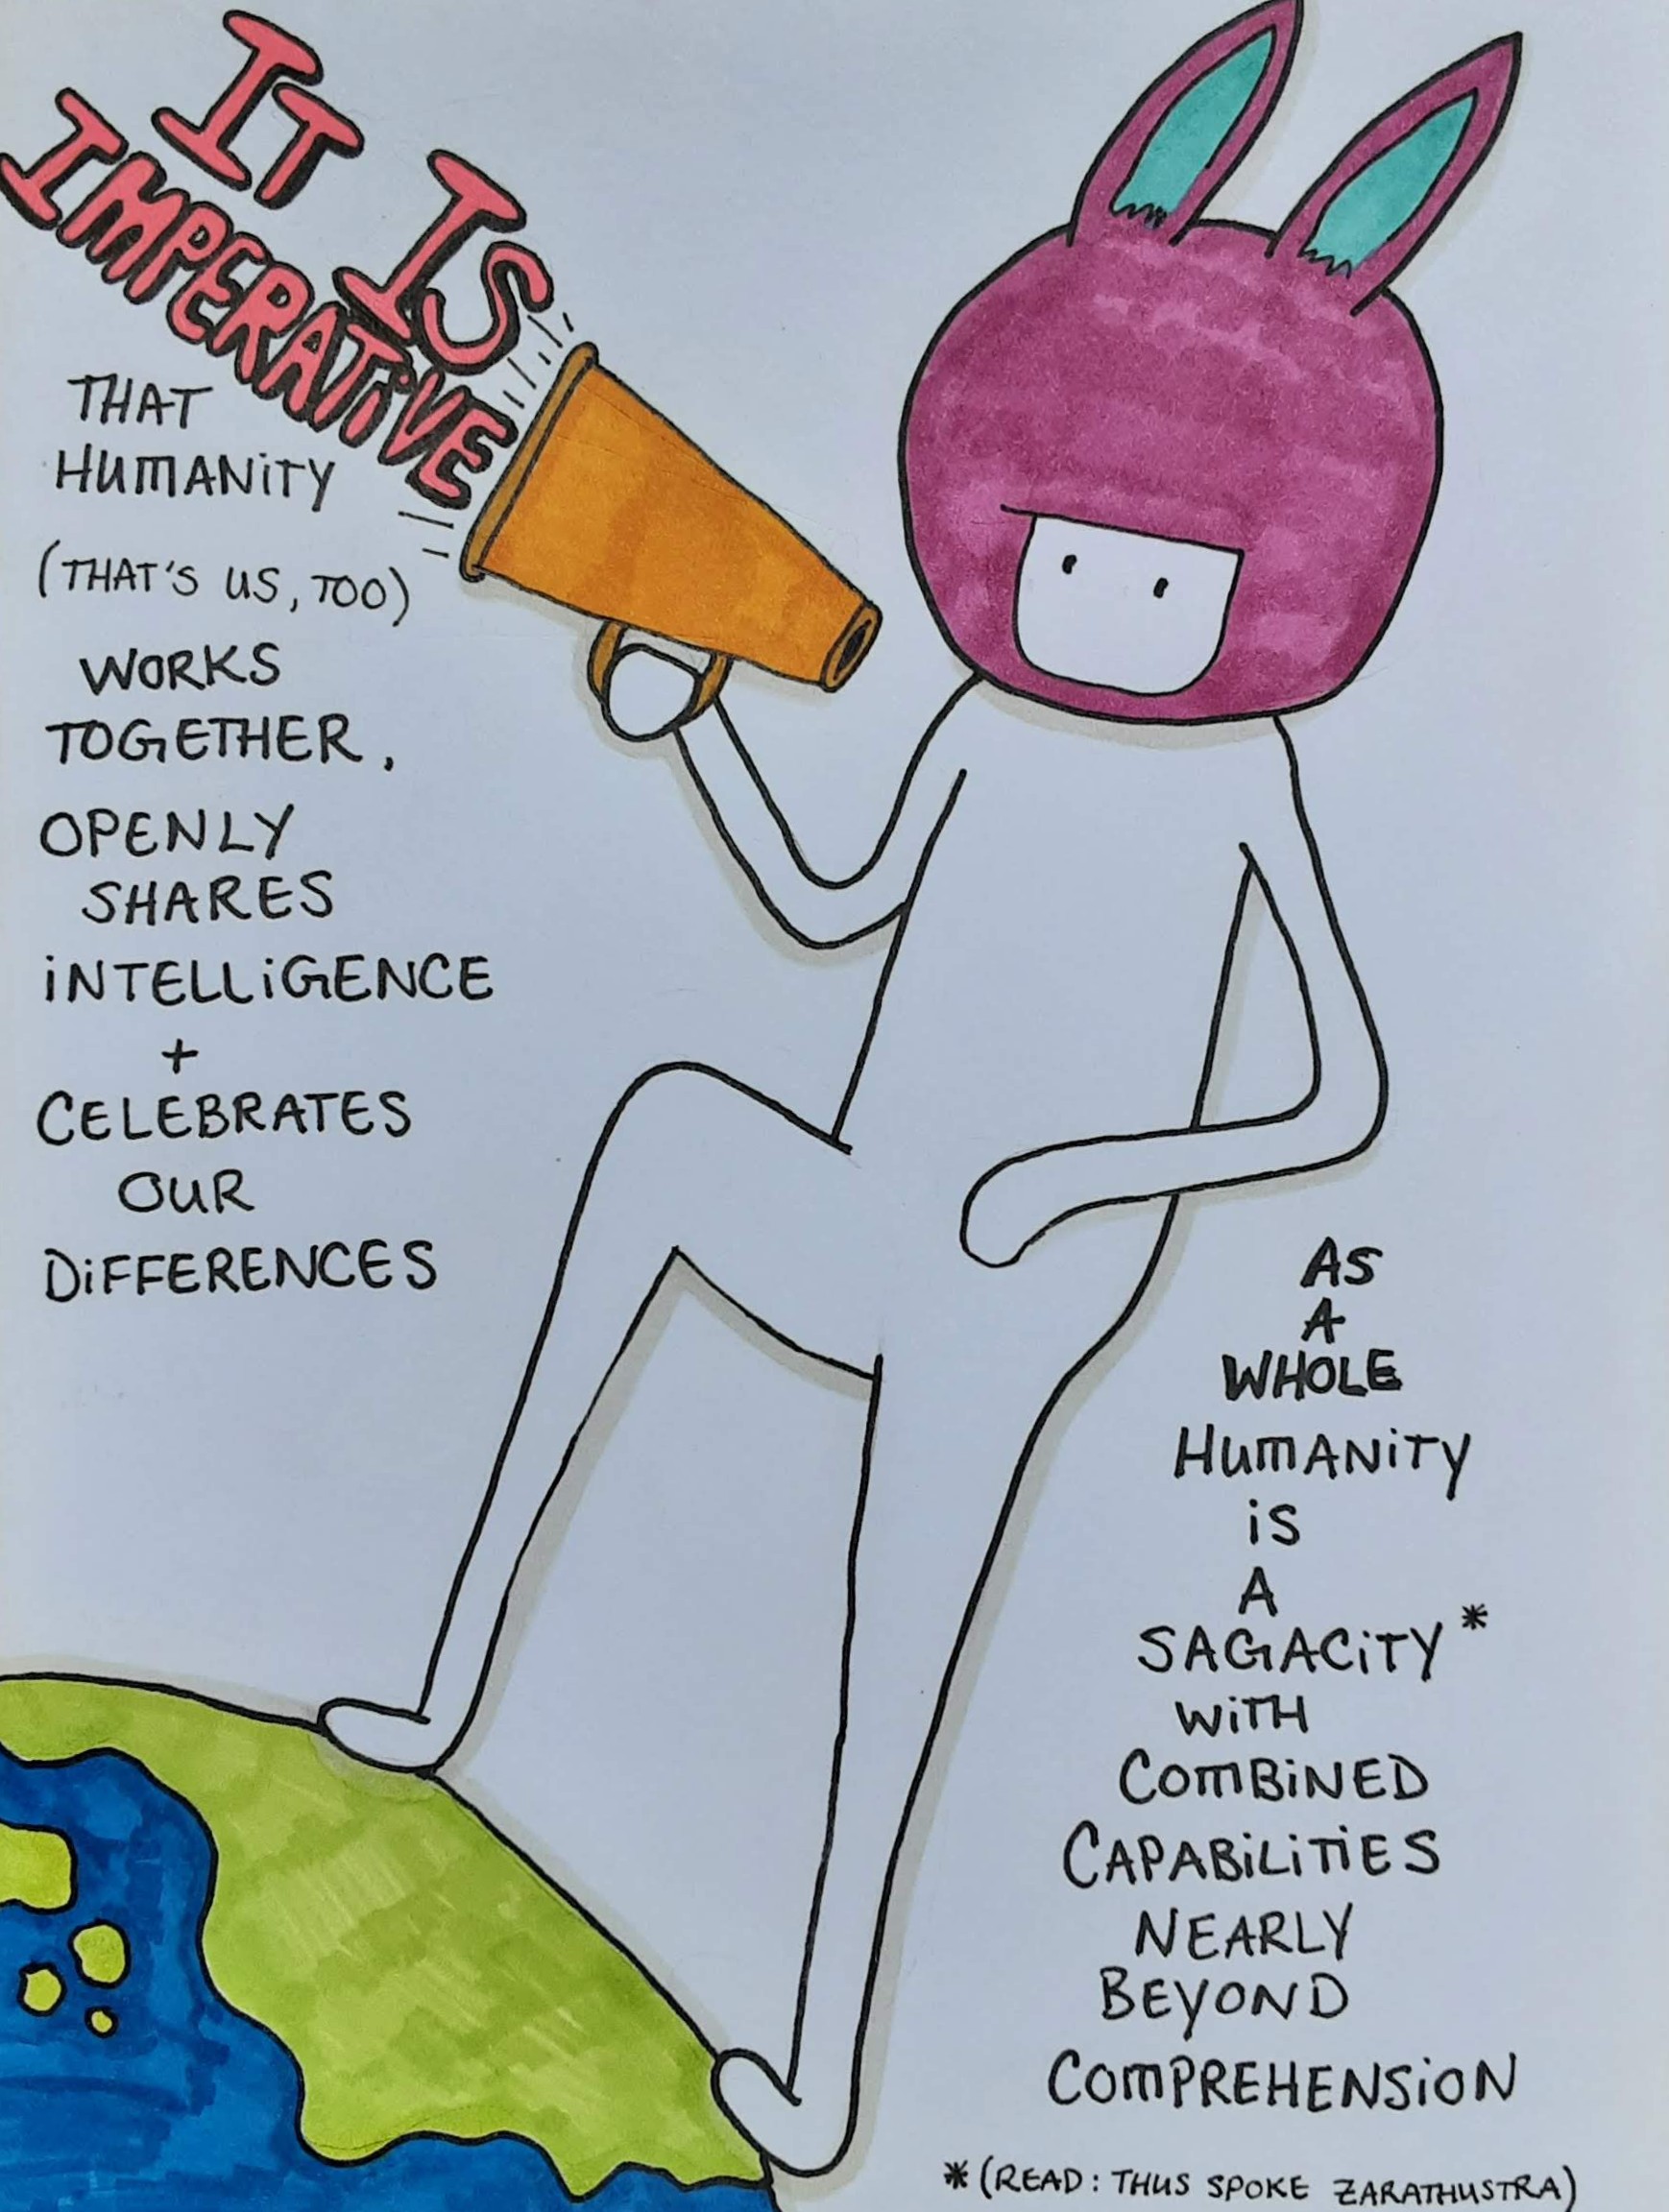 IT IS
IMPERATiVE
THAT
HUMANiTY
(THAT'S US, TOO)
WORKS
TOGETHER,
OPENLY
SHARES
iNTELLiGENCE
+
CELEBRATES
OUR
DiFFERENCES
AS
A
WHOLE
HUMANiTY
iS
A
SAGACiTY*
WiTH
COMBiNED
CAPABiLiTiES
NEARLY
BEYOND
COMPREHENSiON
*(READ: THUS SPOKE ZARATHUSTRA)